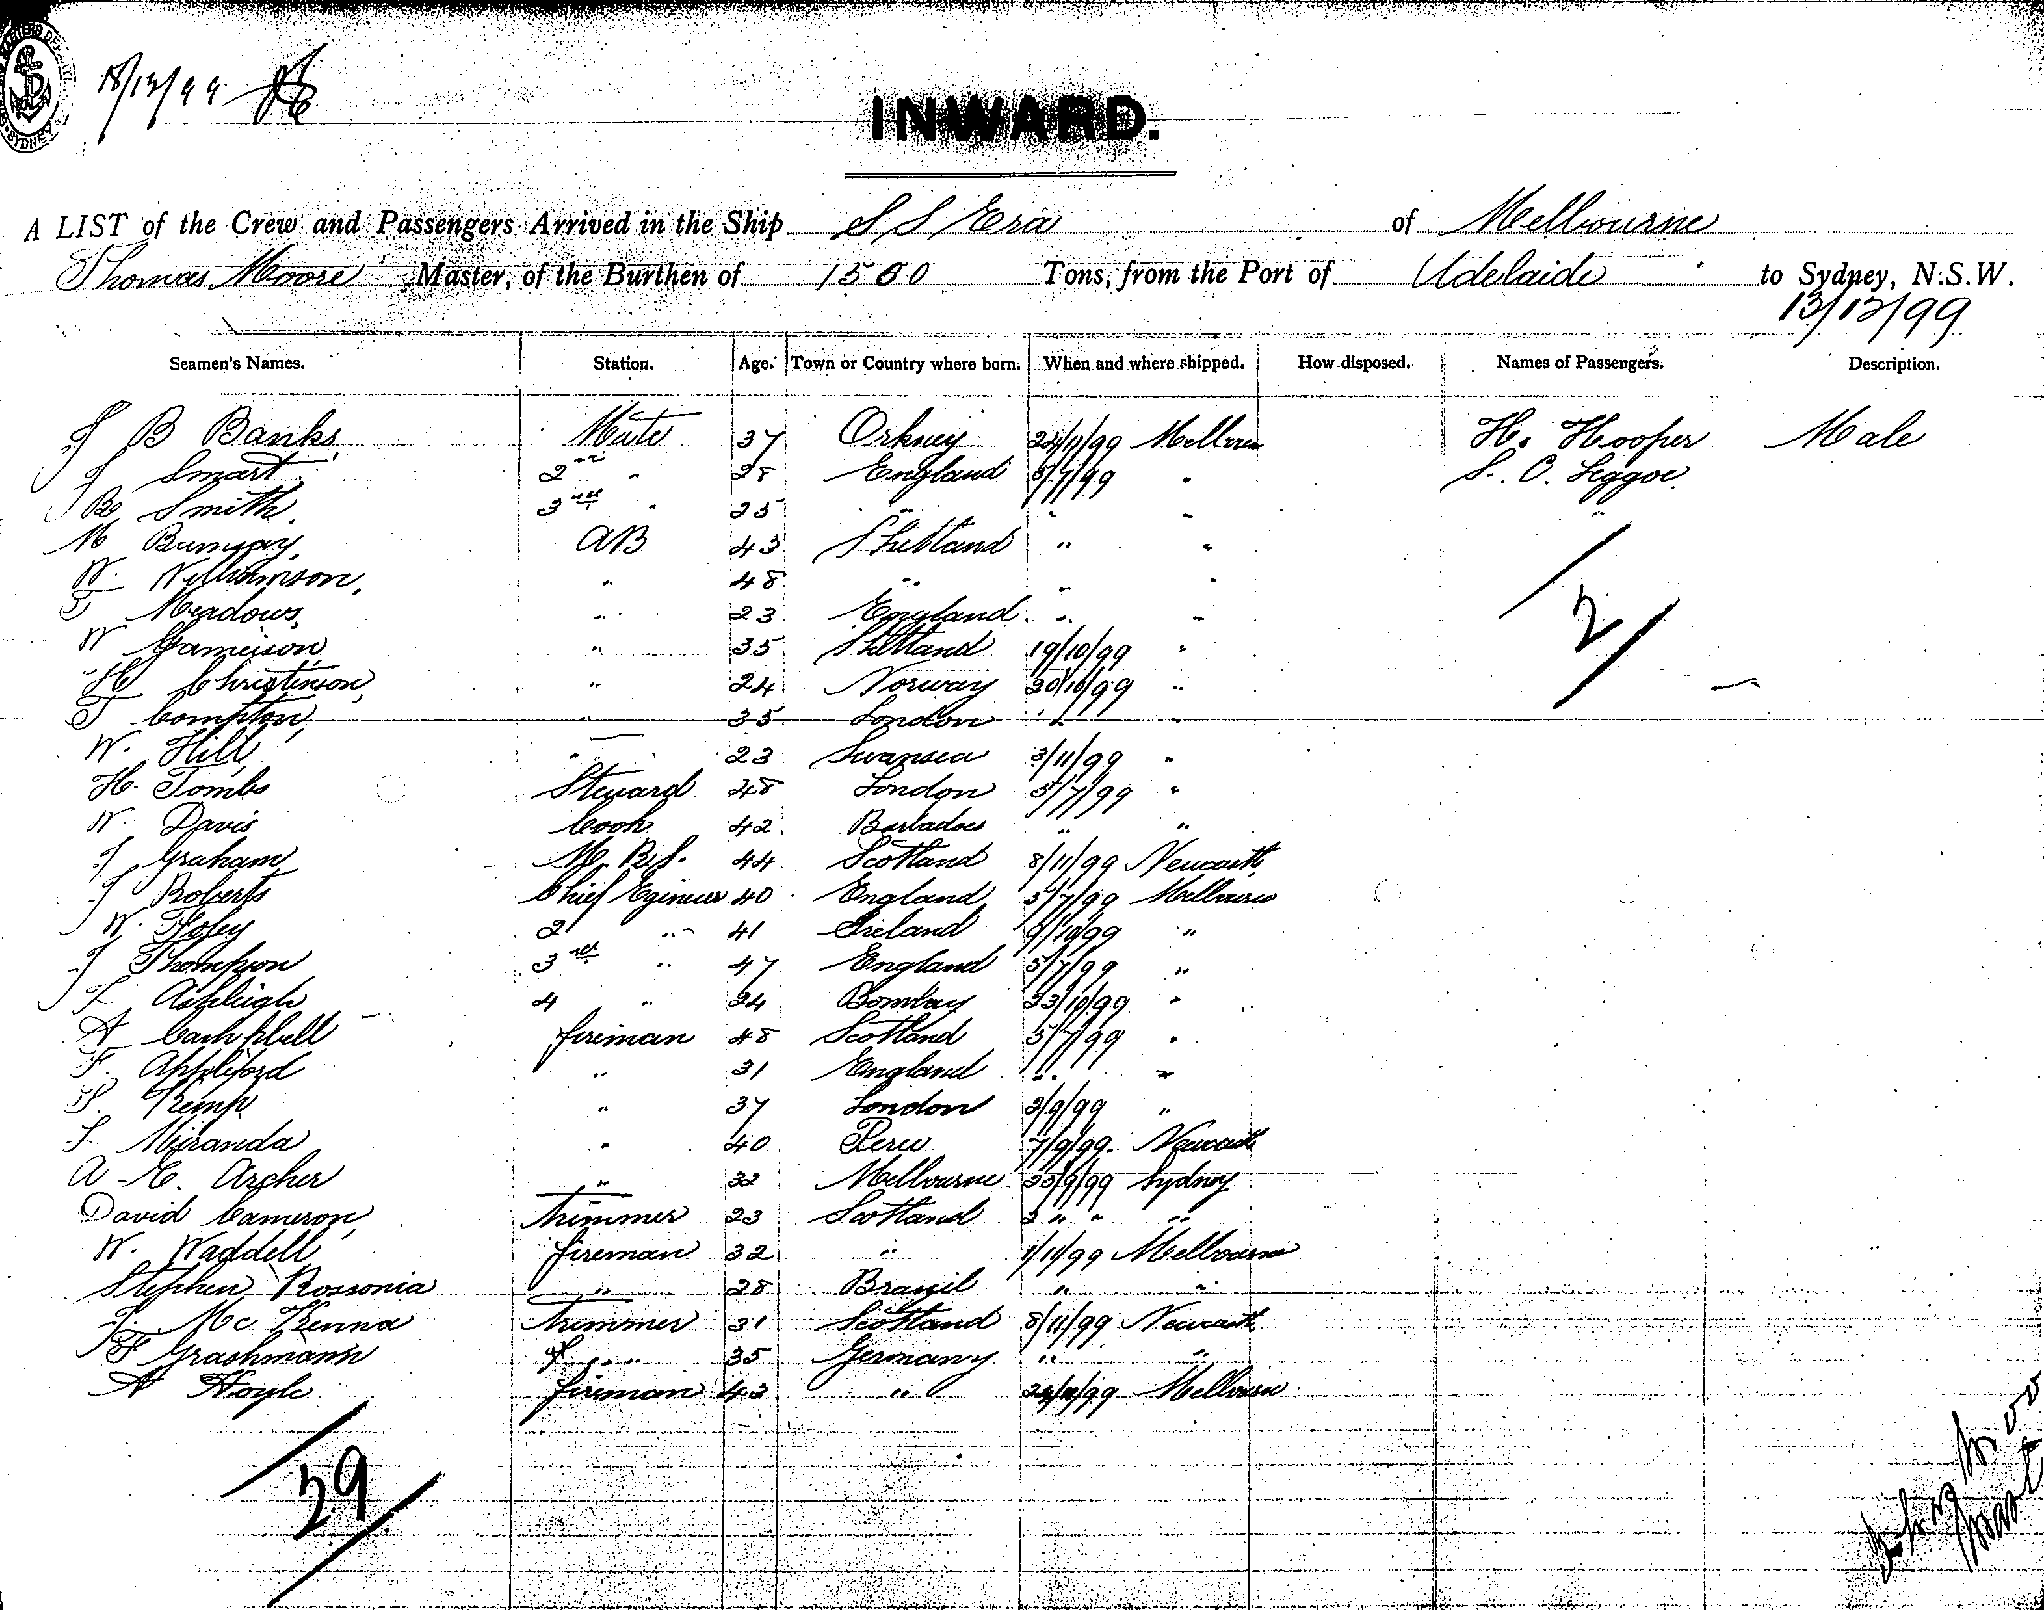 18/12/99
INWARD.
A LIST of the Crew and Passengers Arrived in the Ship S S Era of Melbourne
Thomas Moore Master, of the Burthen of 1500 Tons, from the Port of Adelaide to Sydney, N.S.W.
13/12/99
Seamen's Names. Station. Age. Town or Country where born. When and where shipped. How disposed. Names of Passengers. Description.
J B Banks Mate 37 Orkney /11/99 H. Hooper Male
J Smart 2nd " 28 England 5/7/99 " S. O. Leggoe
R Smith 3rd " 25 " " "
M AB 43 Shetland " "
W. Williamson " 48 " " "
T Meadows " 23 England " "
W Jameison " 35 Shetland 19/10/99 "
H Christinson " 24 Norway 30/10/99 "
T Compton " 35 London " "
W. Hill " 23 Swansea 3/11/99 "
H. Tombs Steward 48 London 5/7/99 "
W. Davis Cook 42 Barbados " "
J Graham 44 Scotland 8/11/99
J Roberts Chief Egineer 40 England 5/7/99 Melbourne
W. Foley 2 " 41 Ireland 9/10/99 "
J Thompson 3rd " 47 England 5/7/99 "
Ashleigh 4 " 24 Bombay 23/10/99 "
A Campbell fireman 48 Scotland 5/7/99 "
F. Appleford " 31 England " "
Kemp " 37 London 2/9/99 "
Miranda " 40 Peru 7/9/99
A E. Archer " 32 Melbourne /9/99 Sydney
David Cameron trimmer 23 Scotland " " "
W. Waddell fireman 32 " 1/11/99 Melbourne
Stephen Rossonia " 28 Brazil " "
J. Mc Kenna trimmer 31 Scotland 8/11/99
F Grashmann " 35 Germany " "
A Hoyle fireman 43 " /99
2
29